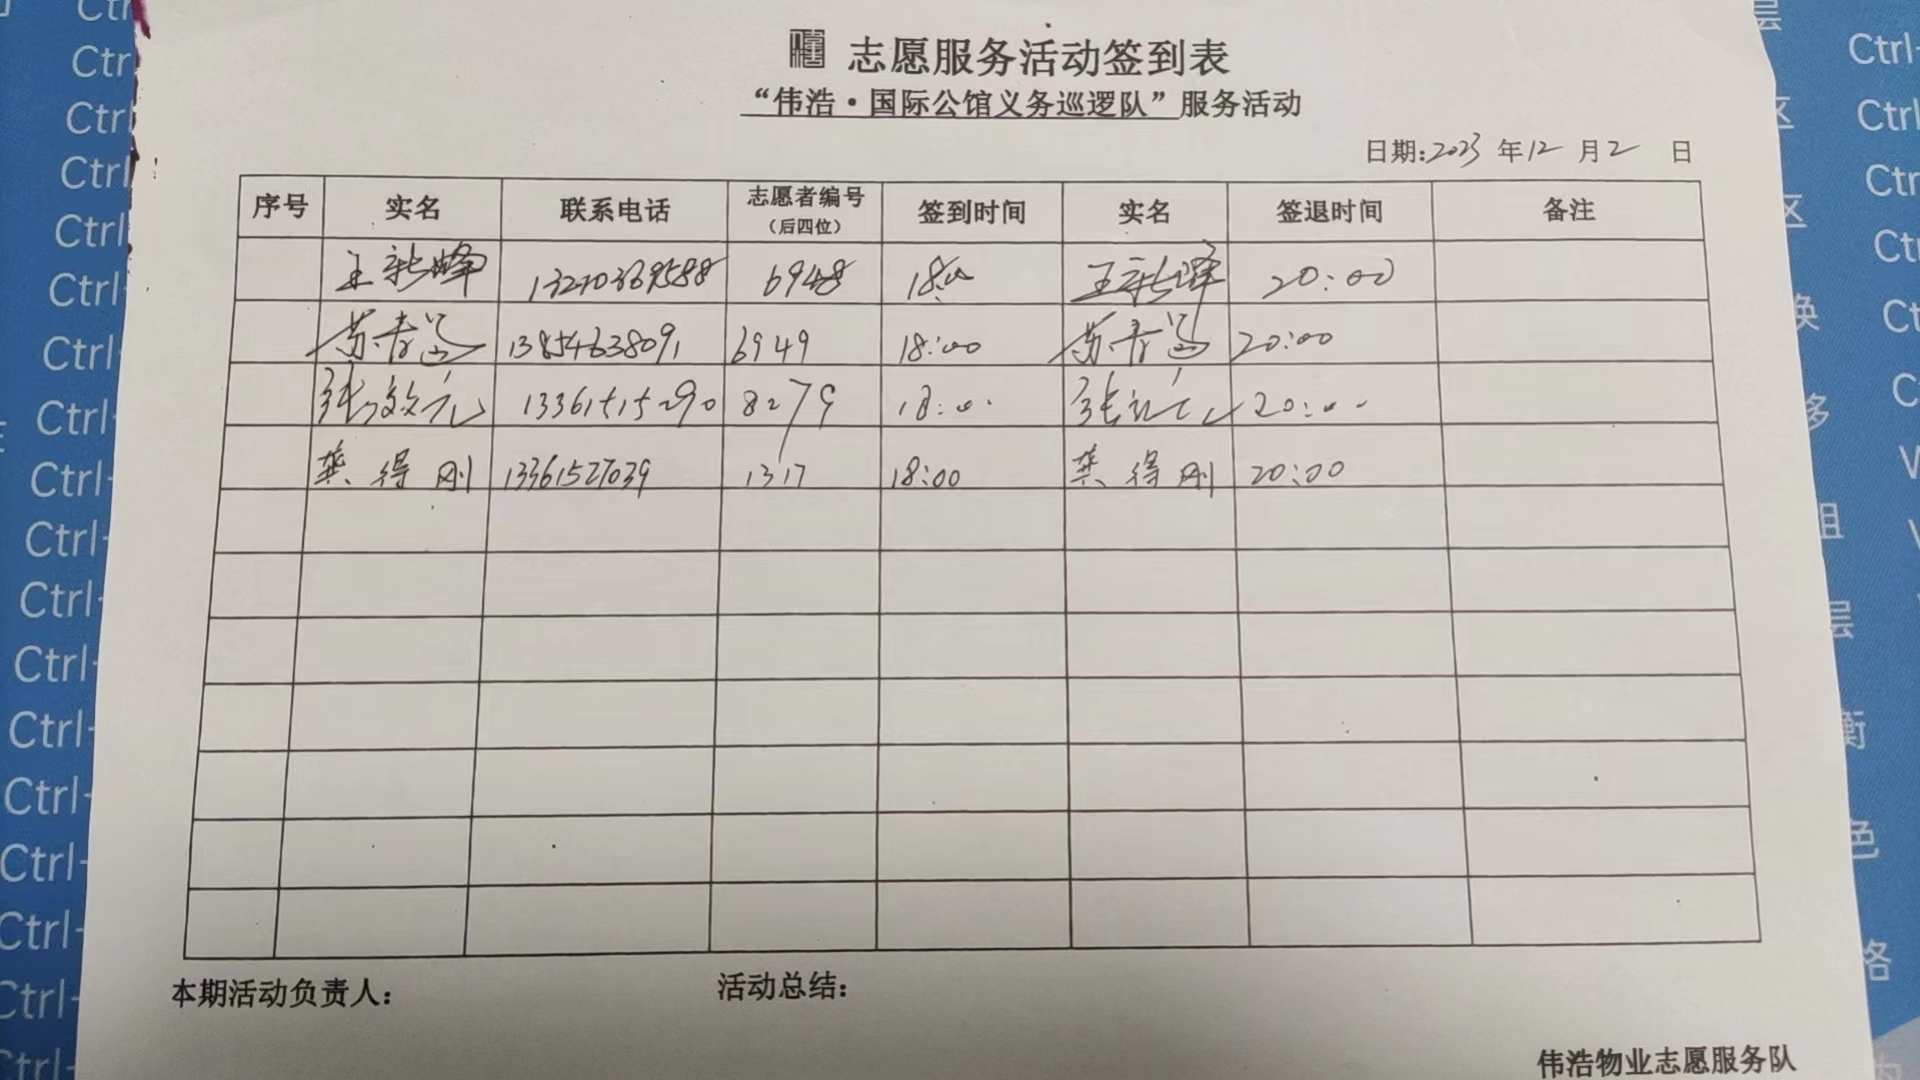 志愿服务活动签到表
“伟浩·国际公馆义务巡逻队”服务活动
日期:2023 年12 月2 日
序号 实名 联系电话 志愿者编号（后四位） 签到时间 实名 签退时间 备注
王新峰 13210369588 6948 18:00 王新峰 20:00
13854638091 6949 18:00 20:00
张效元 13361515290 8279 18:00 张效元 20:00
龚得刚 13361527039 1317 18:00 龚得刚 20:00
本期活动负责人： 活动总结：
伟浩物业志愿服务队
Ctrl
Ctrl
Ctrl
Ctrl
Ctrl
Ctrl
Ctrl
Ctrl-
Ctrl-
Ctrl-
Ctrl-
Ctrl-
Ctrl-
Ctrl-
Ctrl-
Ctrl-
Ctrl-
层
区
区
换
移
组
层
衡
色
格